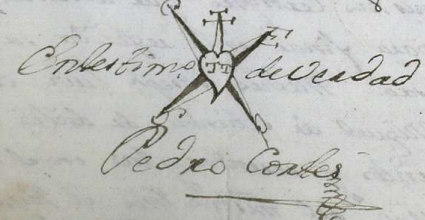 En testimo de verdad
Pedro Cortes